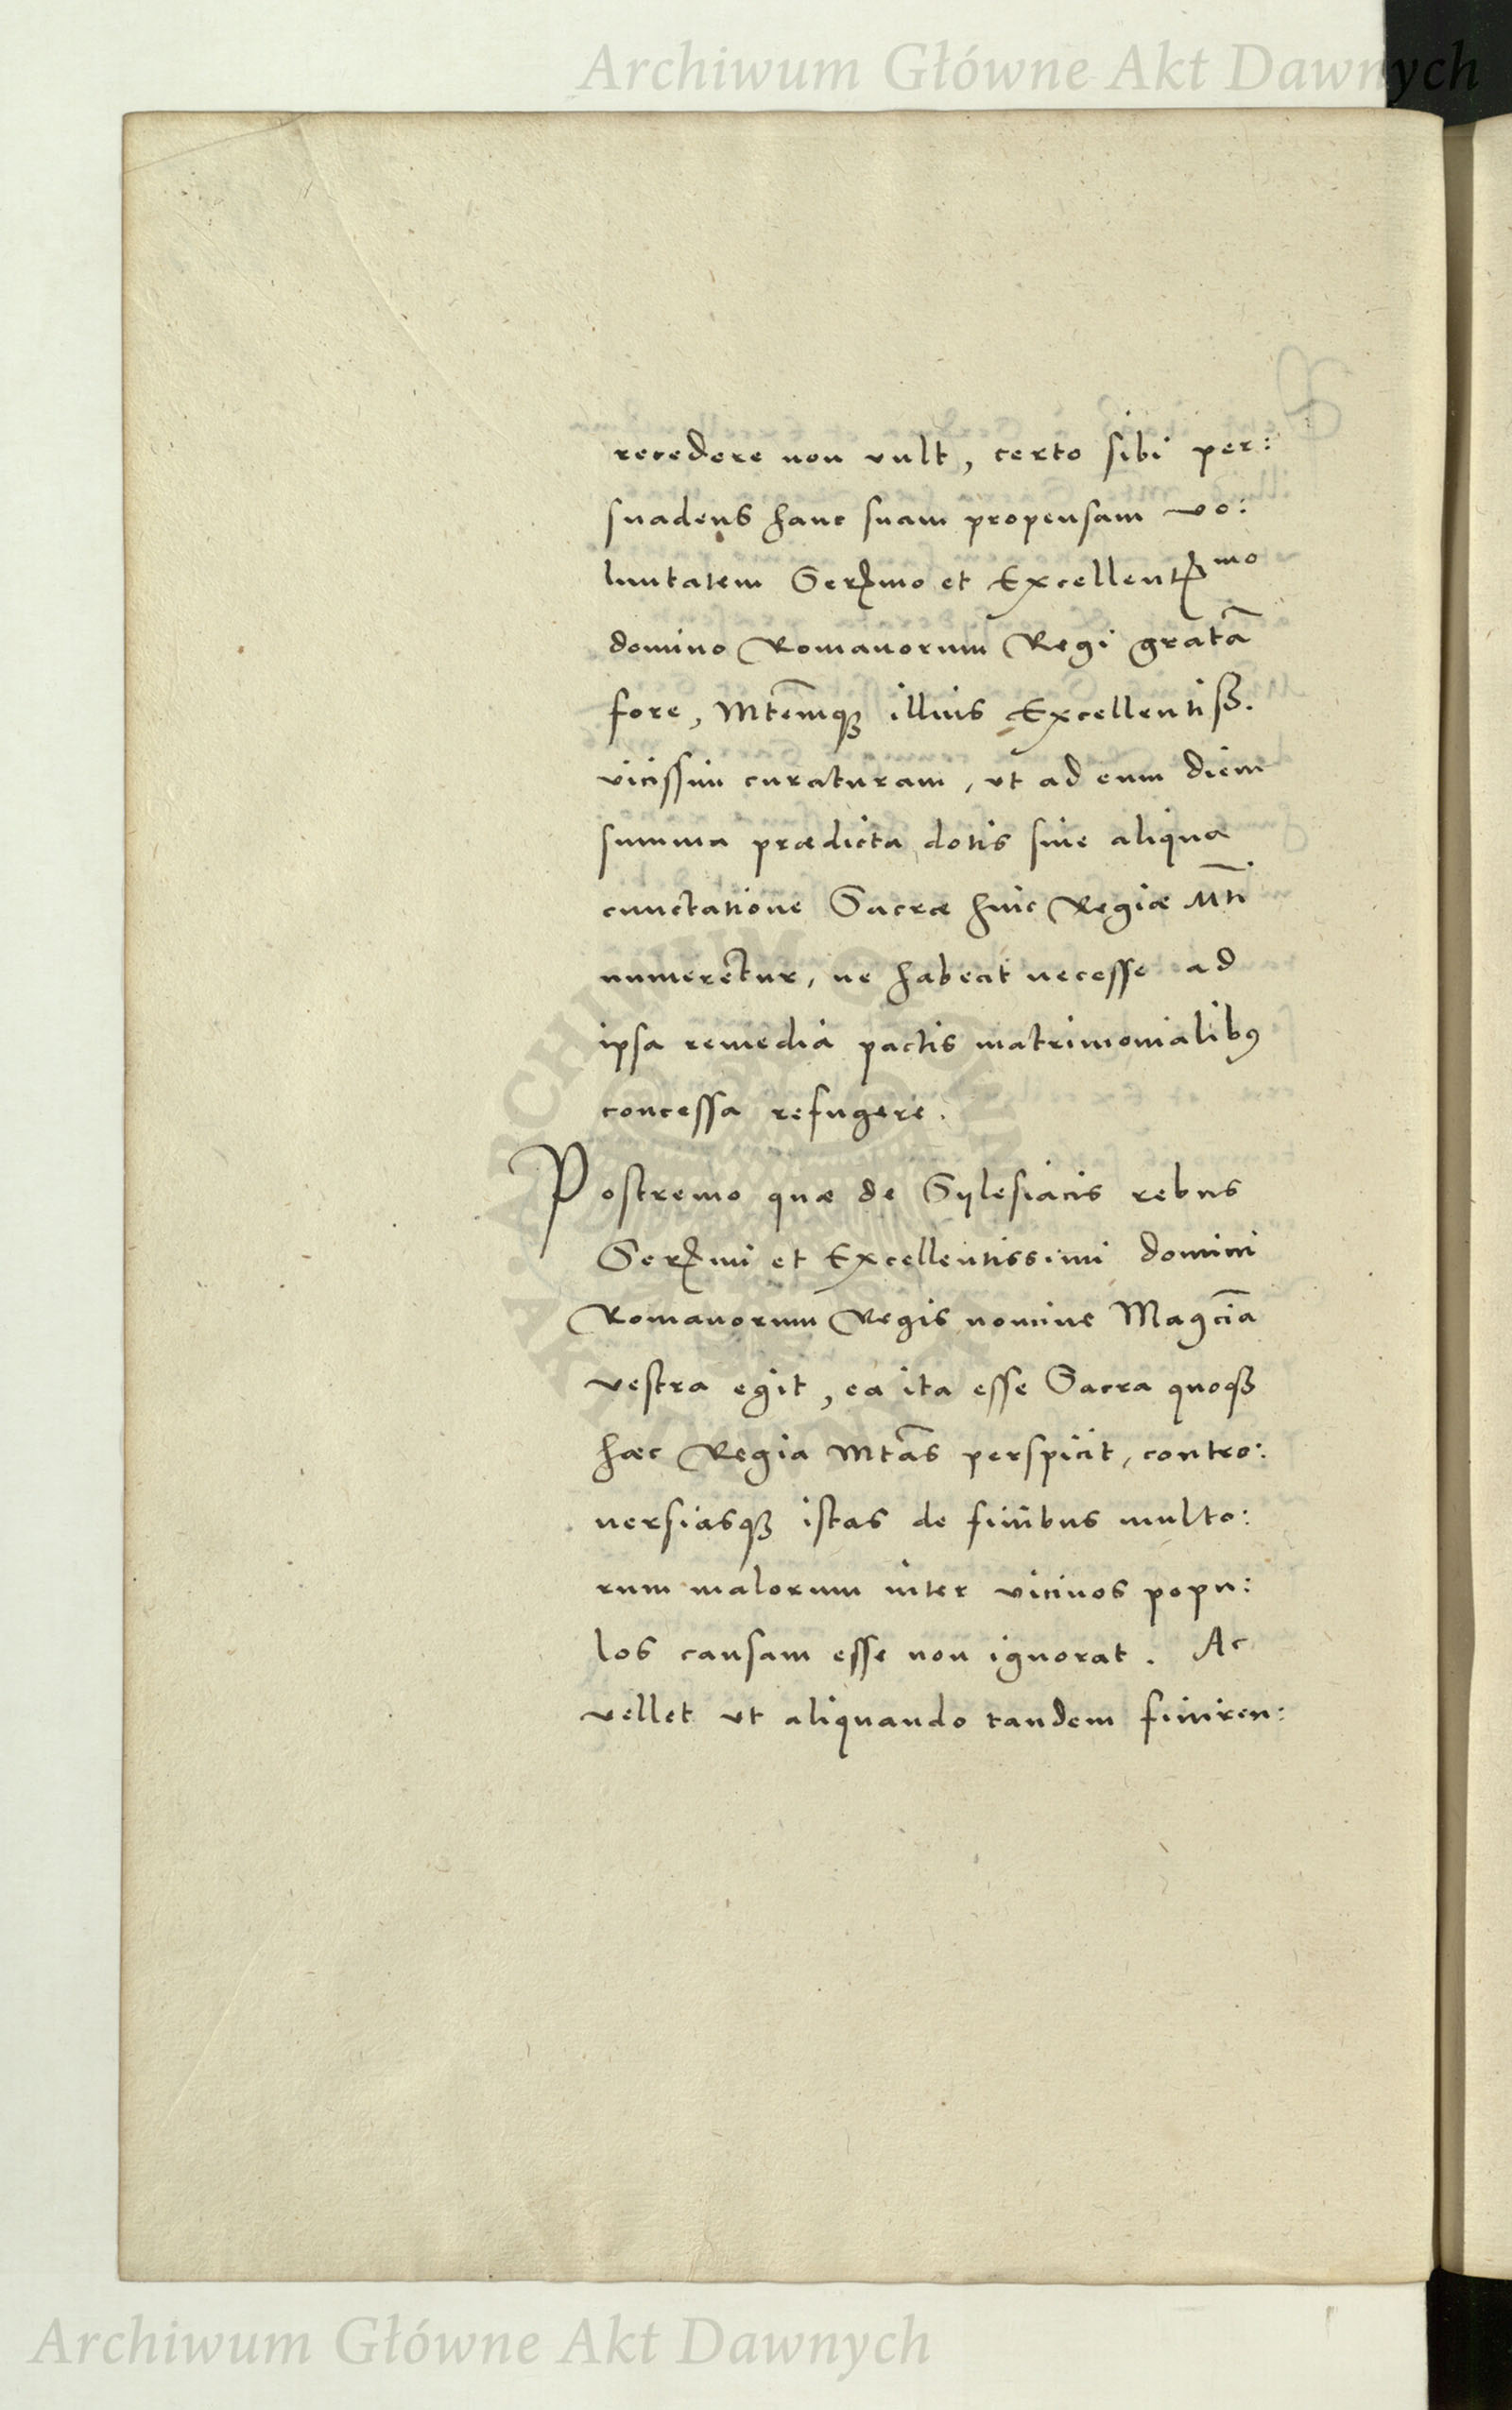 Archiwum Główne Akt Dawnych
recedere non vult, certo sibi per:
suadens hanc suam propensam vo:
luntatem Serꝭmo et Excellentꝭmo
domino Romanorum Regi gratā
fore, Mtēmqꝫ illius Excellentiss.
vicissim curaturam, ut ad eum diem
summa prædicta dotis sine aliqua
cunctatione Sacræ huic Regiæ Mti̅
numeretur, ne habeat necesse ad
ipsa remedia pactis matrimonialibꝰ
concessa refugere.
Postremo quæ de Sylesiacis rebus
Serꝭmi et Excellentissimi domini
Romanorum Regis nomine Magcīa
vestra egit, ea ita esse Sacra quoqꝫ
hæc Regia Mtās perspicit, contro:
uersiasqꝫ istas de finibus multo:
rum malorum inter vicinos popu:
los causam esse non ignorat. Ac
vellet ut aliquando tandem finiren:
Archiwum Główne Akt Dawnych